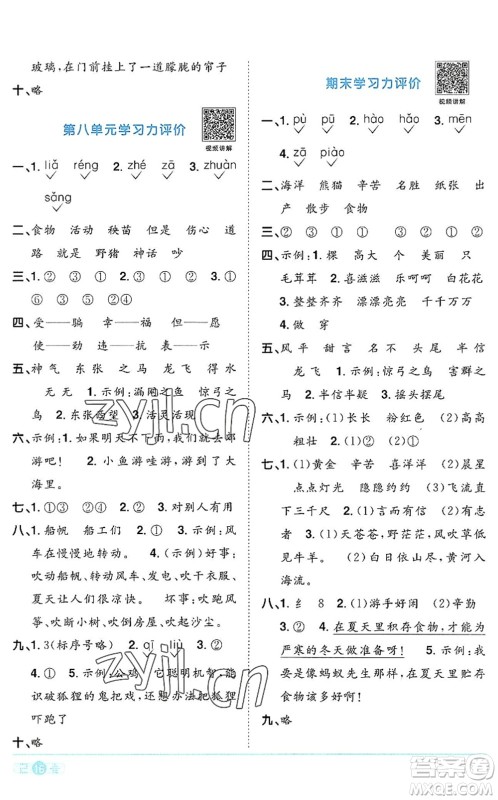 玻璃，在门前挂上了一道朦胧的帘子
十、略
第八单元学习力评价
视频讲解
一、1. liǎ réng 2. zhé zā 3. zhuàn
sǎng
二、食物 活动 秧苗 但是 伤心 道
路 就是 野猪 神话 吵
三、1.②③①① 2.④③④ 3.④①
⑥③⑤②④
四、受——骗 幸——福 但——愿
使——劲 违——抗 表——示
五、神气 东张 之马 龙飞 得水
无无 1.示例：漏网之鱼 惊弓之
鸟 2.东张西望 3.活灵活现
六、示例：1.如果明天不下雨，我们就去郊
游吧！ 2.小鱼游哇游，游到了大
海里。
七、1.①③ 2.①② 3.对别人有用
八、1.船帆 船工们 2.示例：风
车在慢慢地转动。 3.（示例）好事：
吹动船帆、转动风车、吹干衣服、
夏天让人们凉快。 坏事：吹跑风
筝、吹断小树、吹倒房屋、吹翻小船。
九、1.3（标序号略） 2. qǐ liù 3.②
4.① 5.示例：公鸡；它聪明机智，能
识破狐狸的鬼把戏，还把狐狸
吓跑了
十、略
期末学习力评价
视频讲解
一、1. pù pū 2. hāo hǎo 3. mēn
4. zā piāo
二、海洋 熊猫 辛苦 名胜 纸张 出
产 散步 食物
三、②①③ ①②③ ③①② ②①③
四、示例：1.棵 高大 个 美丽 只
毛茸茸 2.喜滋滋 乐呵呵 白花花
3.整整齐齐 漂漂亮亮 千千万万
4.做 穿
五、风平 甜言 名不 头尾 半信
龙飞 1.示例：惊弓之鸟 害群之
马 2.半信半疑 3.摇头摆尾
六、1.示例：（1）长长 粉红色 （2）高高
粗壮 2.（1）②④ （2）①③
七、1.（1）黄金 辛苦 喜洋洋 （2）晨星
点点灯光 隐隐约约 （3）飞流直
下三千尺 2.（1）天苍苍，野茫茫，风吹草
低见牛羊。 （2）白日依山尽，黄河入
海流。
八、1. 纟 8 2.（1）游手好闲 （2）辛勤
3.② 4.在夏天里积存食物，才能为
严寒的冬天做准备呀！ 5.示例：我要
是像蚂蚁先生那样，在夏天里贮存
食物该多好哇！
九、略
zyjl.cn
zyjl.cn